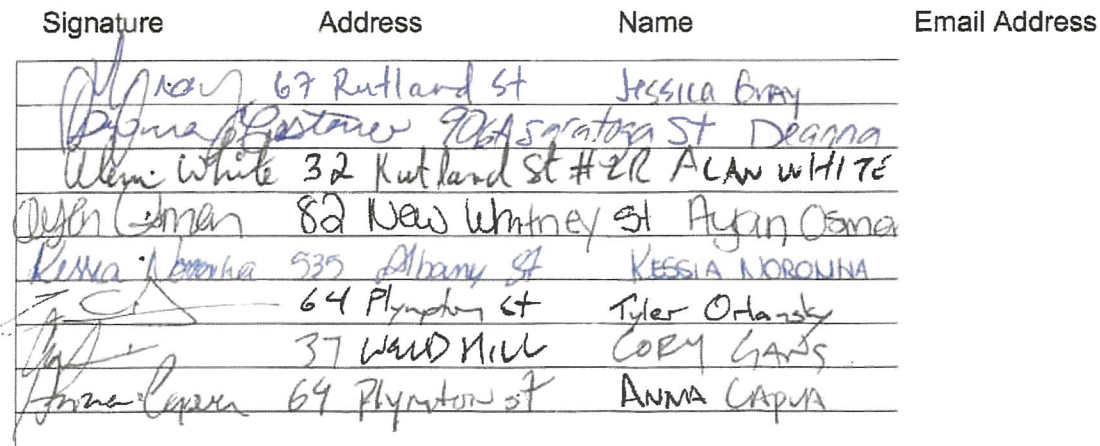 Signature Address Name Email Address
Gray 67 Rutland St Jessica Gray
906A Saratoga St Deanna
Alan White 32 Rutland St #2R ALAN WHITE
Ayan Osman 82 New Whitney St Ayan Osma
Kessia Noronha 535 Albany St KESSIA NORONHA
64 Plympton St Tyler Orlansky
37 WELD HILL CORY GANS
Anna Capua 64 Plympton st ANNA CAPUA